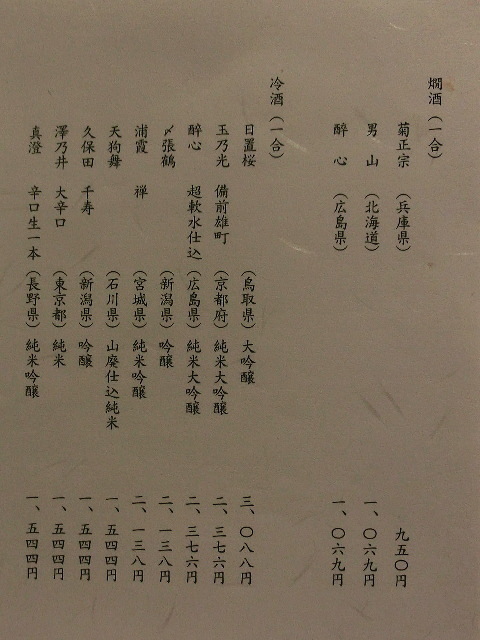 燗酒（一合）
菊正宗（兵庫県）九五〇円
男山（北海道）一、〇六九円
醉心（広島県）一、〇六九円
冷酒（一合）
日置桜（鳥取県）大吟醸 三、〇八八円
玉乃光 備前雄町（京都府）純米大吟醸 二、三七六円
醉心 超軟水仕込（広島県）純米大吟醸 二、三七六円
〆張鶴（新潟県）吟醸 二、一三八円
浦霞 禅（宮城県）純米吟醸 二、一三八円
天狗舞（石川県）山廃仕込純米 一、五四四円
久保田 千寿（新潟県）吟醸 一、五四四円
澤乃井 大辛口（東京都）純米 一、五四四円
真澄 辛口生一本（長野県）純米吟醸 一、五四四円